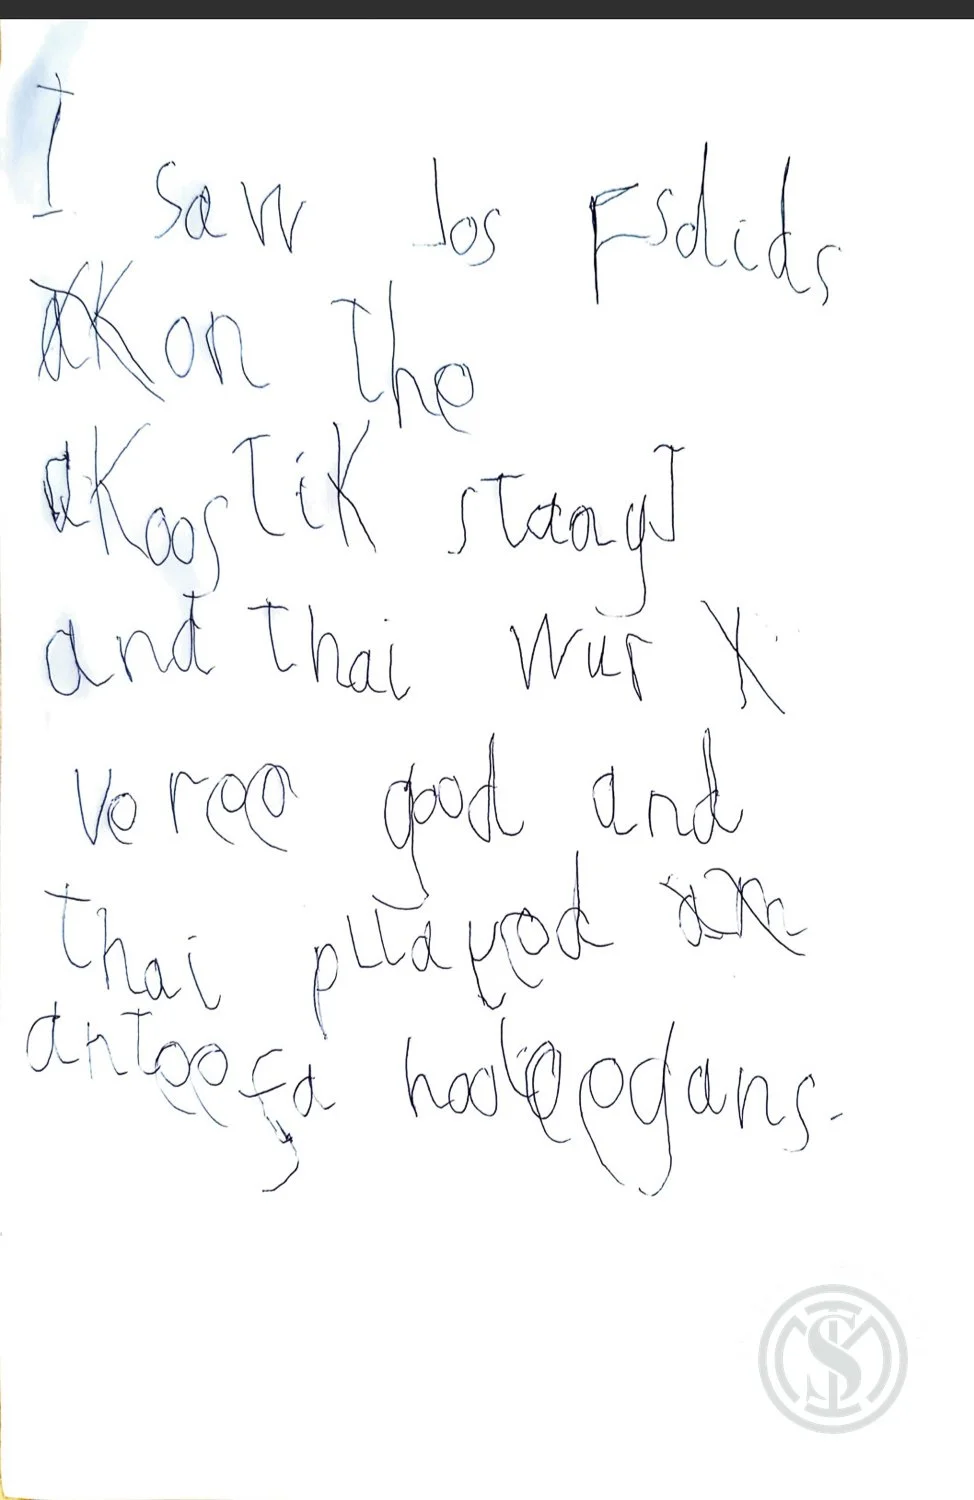 I
saw Los Fsdids
on the
akoostik staagJ
and thai wur
veree good and
thai pllayed
anteefa hooleegans.